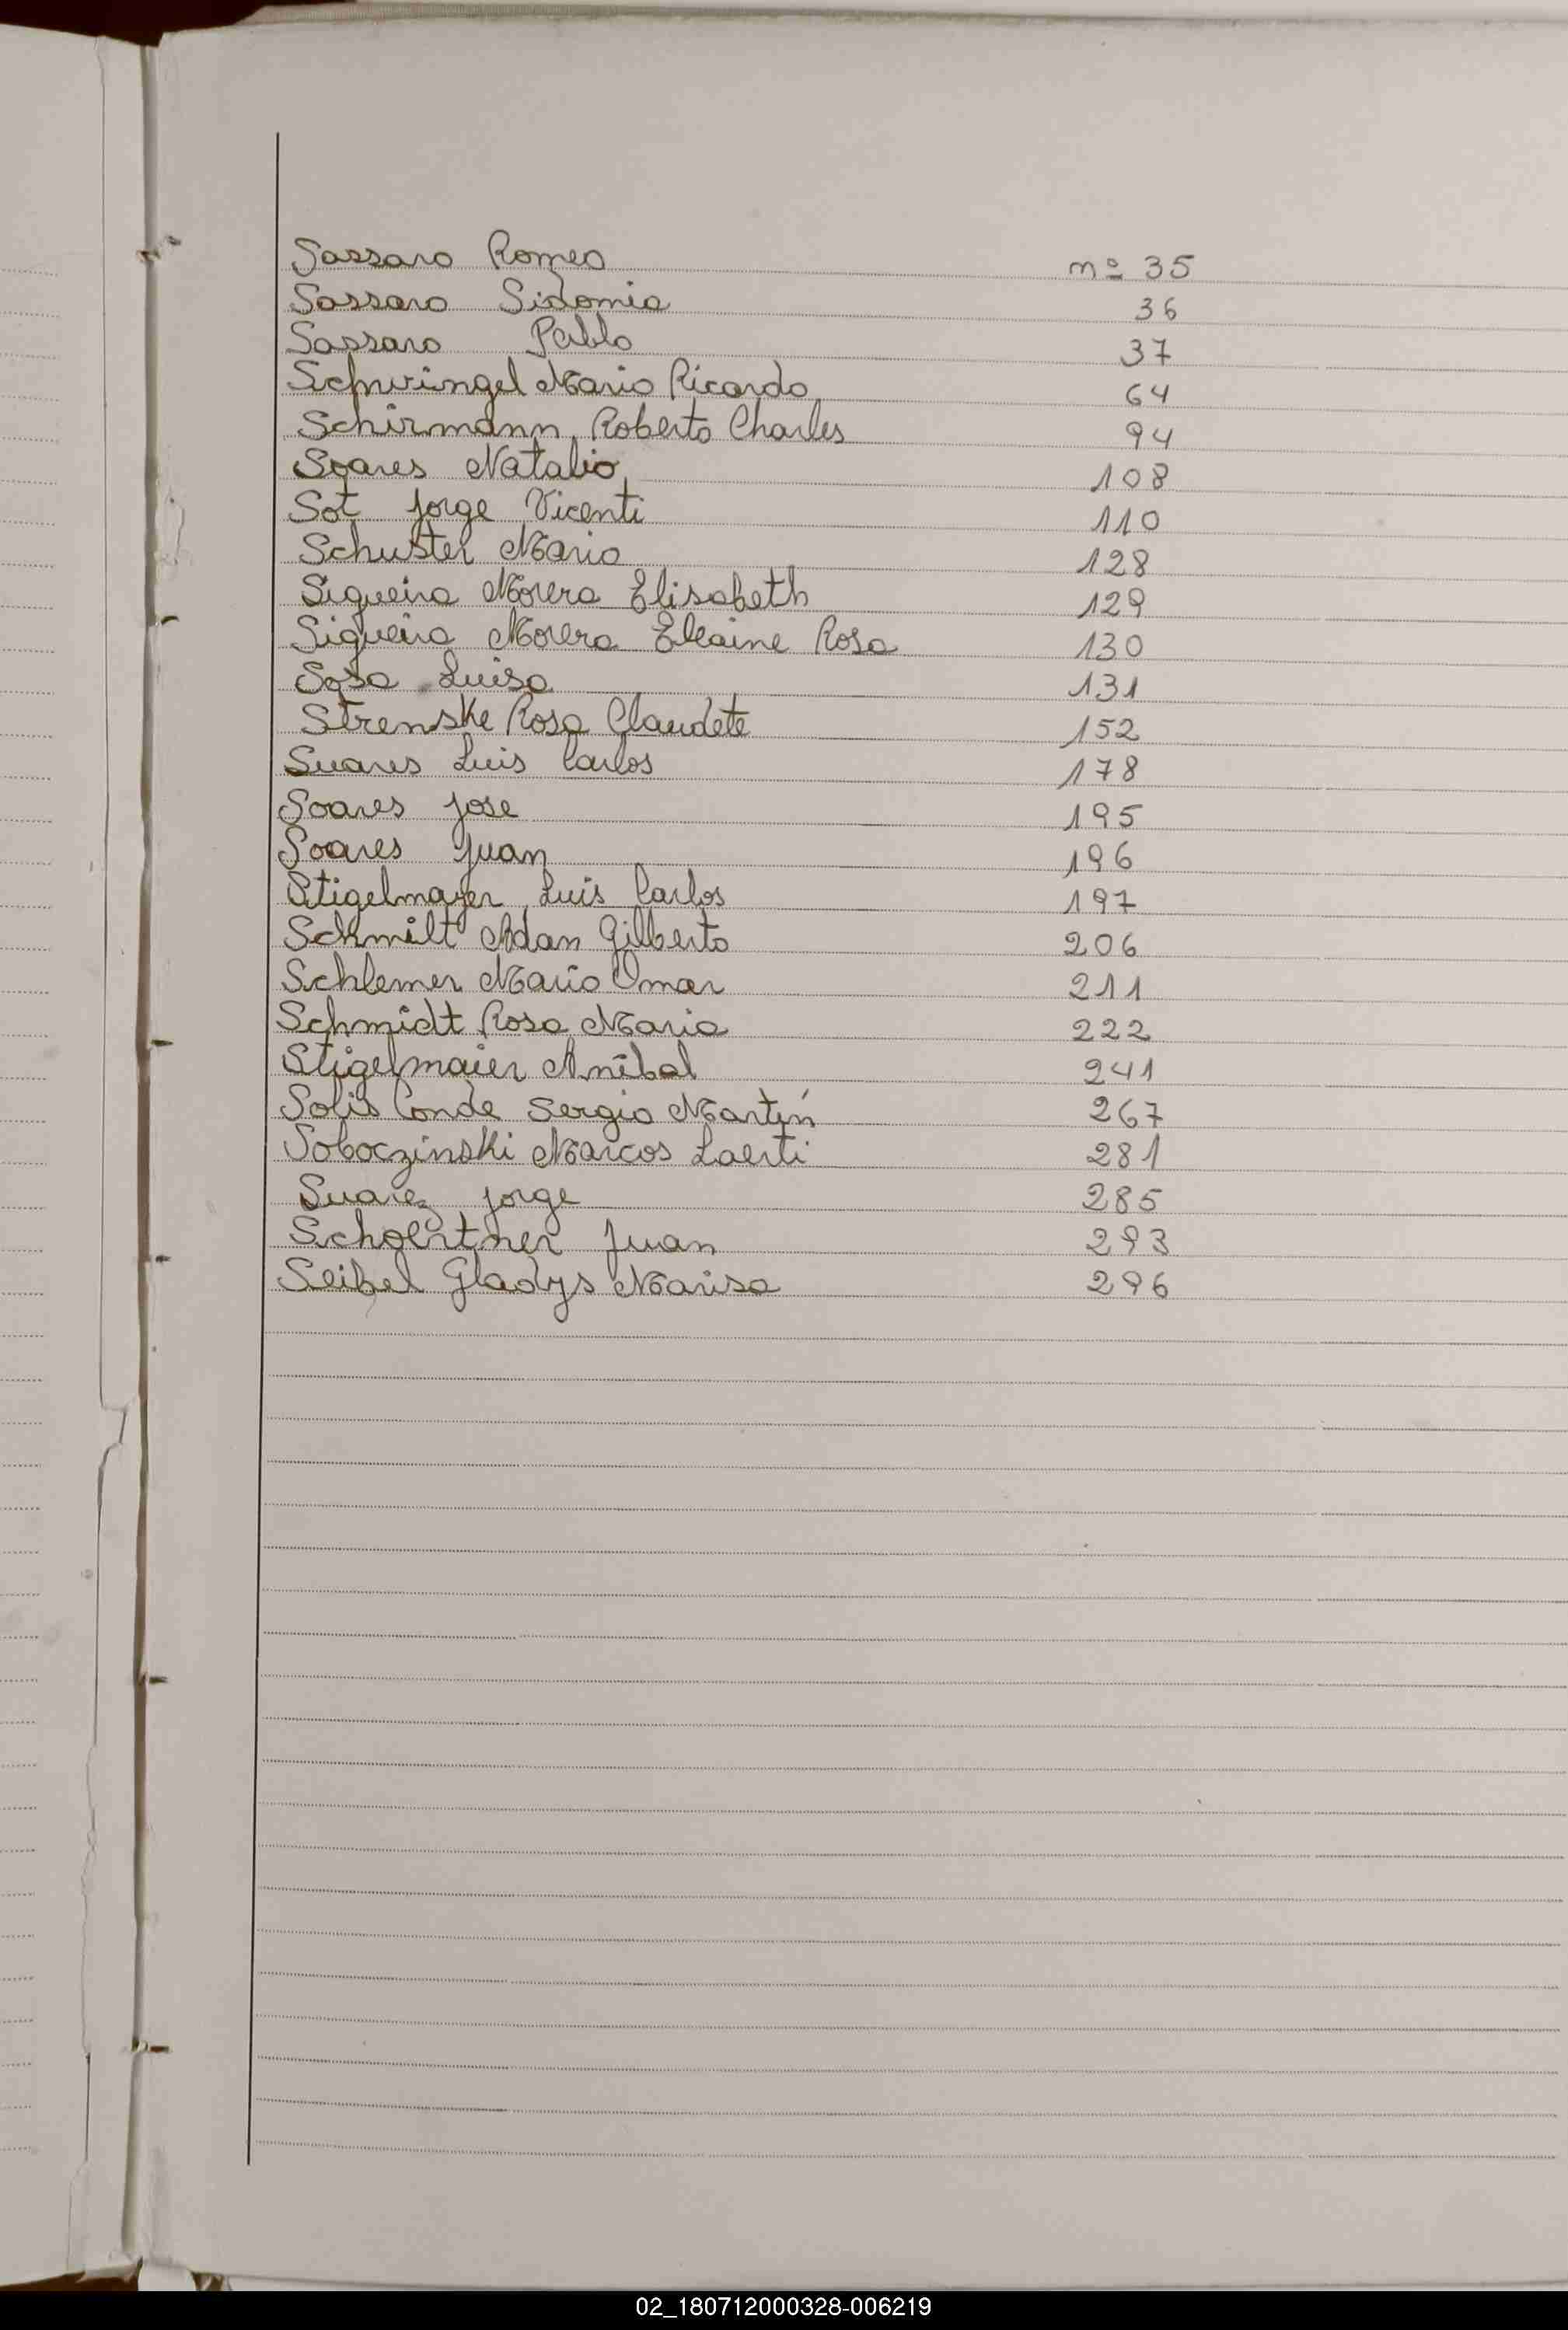 Sassaro Romeo nº 35
Sassaro Sidonia 36
Sassaro Pablo 37
Schwingel Mario Ricardo 64
Schirmann Roberto Charles 94
Soares Natalio 108
Sot Jorge Vicenti 110
Schuster Mario 128
Siqueira Morera Elisabeth 129
Siqueira Morera Eleaine Rosa 130
Sosa Luisa 131
Strenske Rosa Claudete 152
Suares Luis Carlos 178
Soares Jose 195
Soares Juan 196
Stigelmayer Luis Carlos 197
Schmilt Adan Gilberto 206
Schlemer Mario Omar 211
Schmidt Rosa Maria 222
Stigelmaier Anibal 241
Solis Conde Sergio Martín 267
Soboczinski Marcos Laerti 281
Suarez Jorge 285
Schoertner Juan 293
Seibel Gladys Marisa 296
02_180712000328-006219